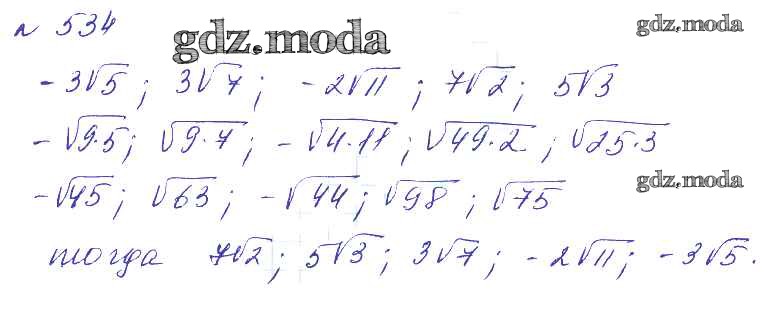 № 534 gdz.moda gdz.moda
-3√5; 3√7; -2√11; 7√2; 5√3
-√9·5; √9·7; -√4·11; √49·2; √25·3
-√45; √63; -√44; √98; √75 gdz.moda
тогда 7√2; 5√3; 3√7; -2√11; -3√5.